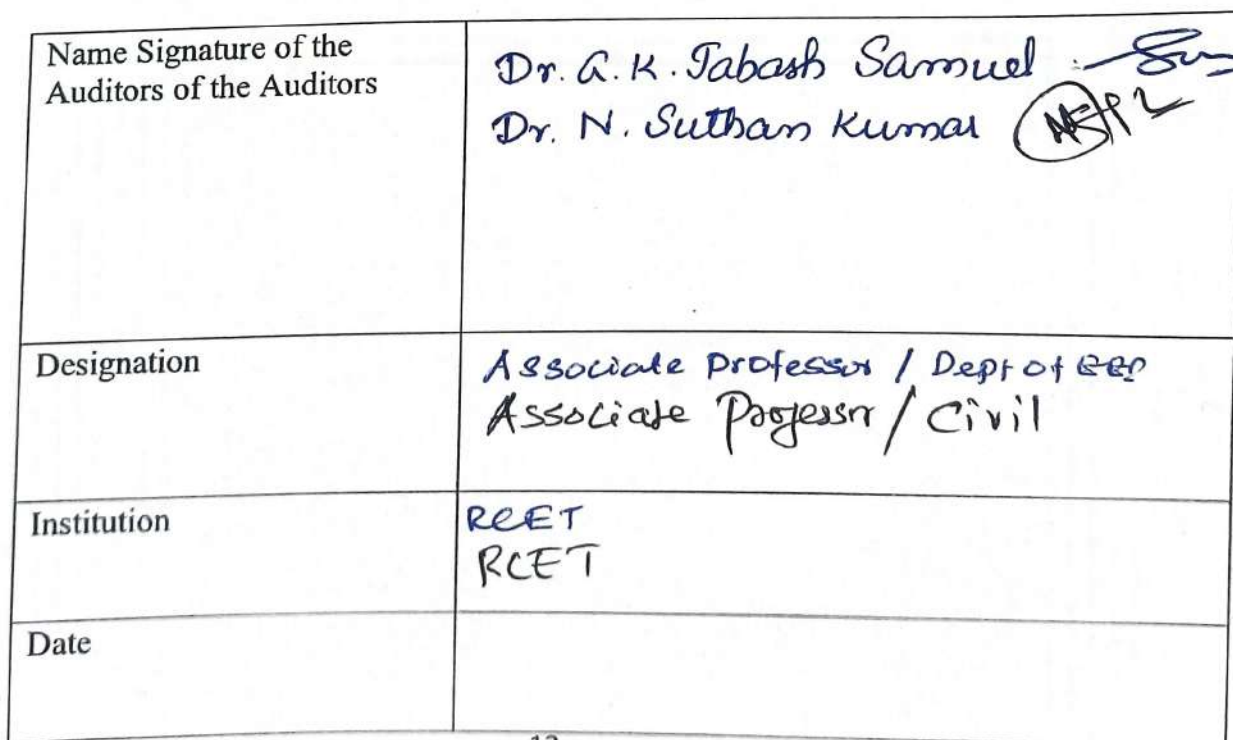 Name Signature of the
Auditors of the Auditors
Dr. G. K. Jabash Samuel
Dr. N. Suthan Kumar
Designation
Associate Professor / Dept of
Associate Professor / Civil
Institution
RCET
RCET
Date